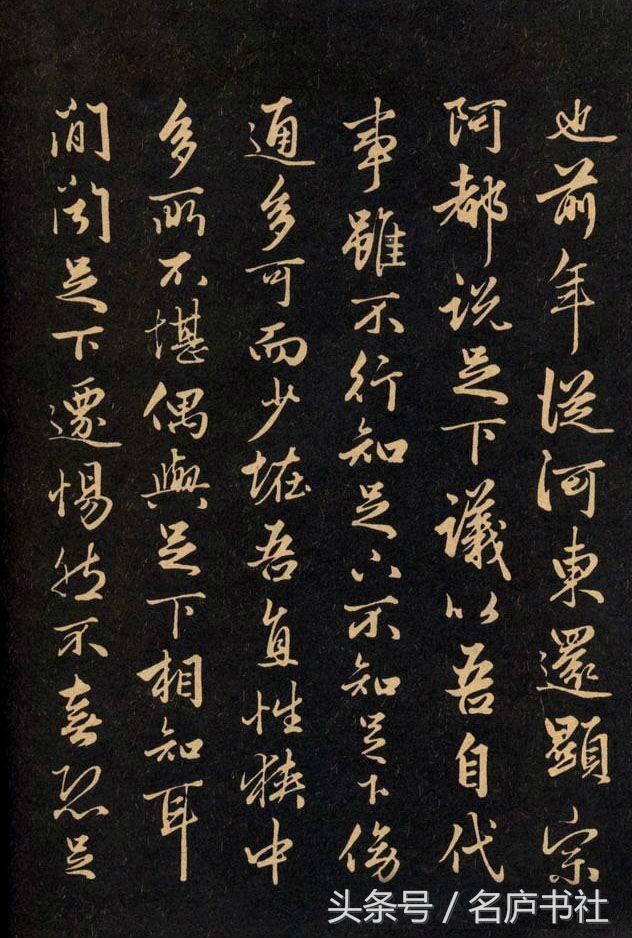 也前年從河東還顯宗
阿都說足下議以吾自代
事雖不行知足下不知足下傍
通多可而少恠吾直性狹中
多所不堪偶與足下相知耳
間聞足下遷惕然不喜恐足
头条号 / 名庐书社